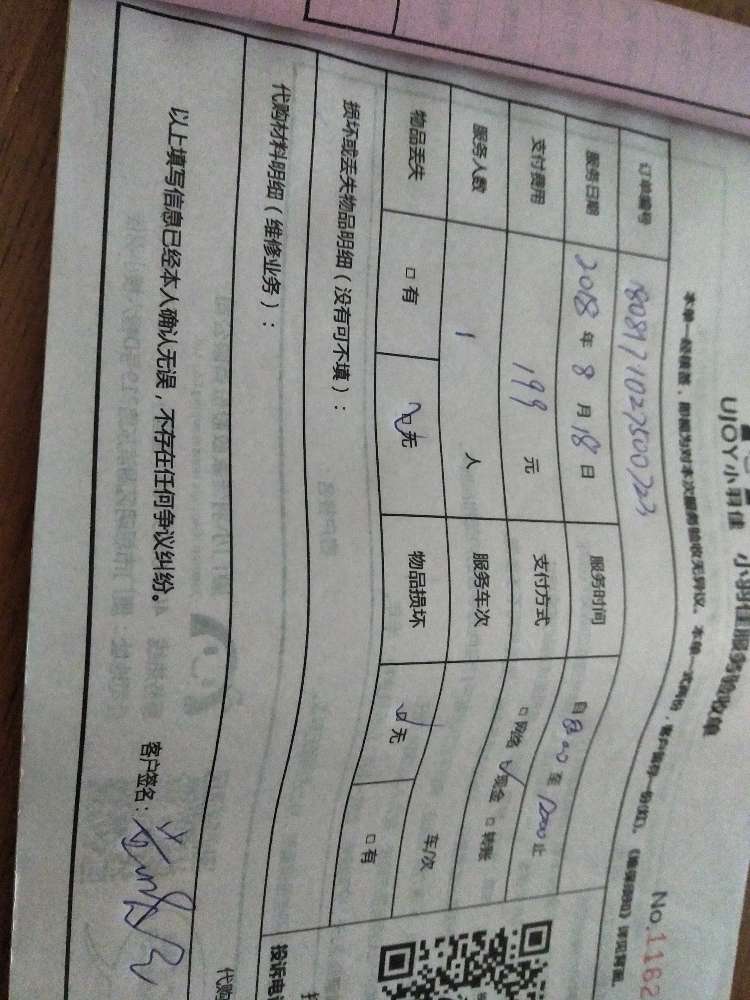 No.1162
UJOY小羽佳 小羽佳服务验收单
本单一经签署,即视为对本次服务验收无异议。本单一式两份,客户留存一份
订单编号
服务日期 2018年8月18日 服务时间 自8:00至12:00止
支付费用 199元 支付方式 □网络 ☑现金 □转账
服务人数 1人 服务车次 车/次
物品丢失 □有 ☑无 物品损坏 ☑无 □有
损坏或丢失物品明细(没有可不填):
代购材料明细(维修业务):
以上填写信息已经本人确认无误,不存在任何争议纠纷。
客户签名:
投诉电
代购